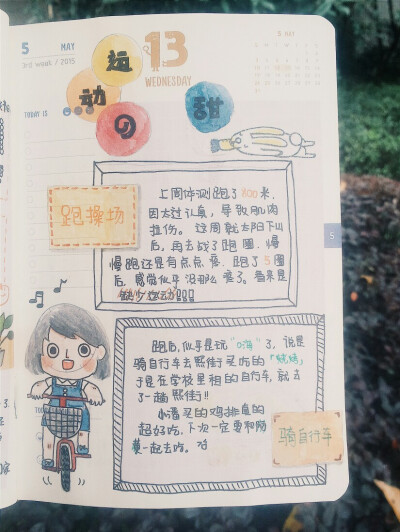 5 MAY
3rd week / 2015
13
WEDNESDAY
5 MAY
TODAY IS
运动の甜
跑操场
上周体测跑了800米,
因太过认真,导致肌肉
拉伤。这周就太阳下山
后,再去战了跑圈,慢
慢跑还是有点点疼,跑了5圈
后,感觉似乎没那么疼了。看来是
缺少运动!!!
5
跑后,似乎是玩“嗨”了,说是
骑自行车去熙街买吃的
于是在学校里租的自行车,就去
了一趟熙街!!
小潘买的鸡排真的
超好吃,下次一定要和
一起去吃。
骑自行车